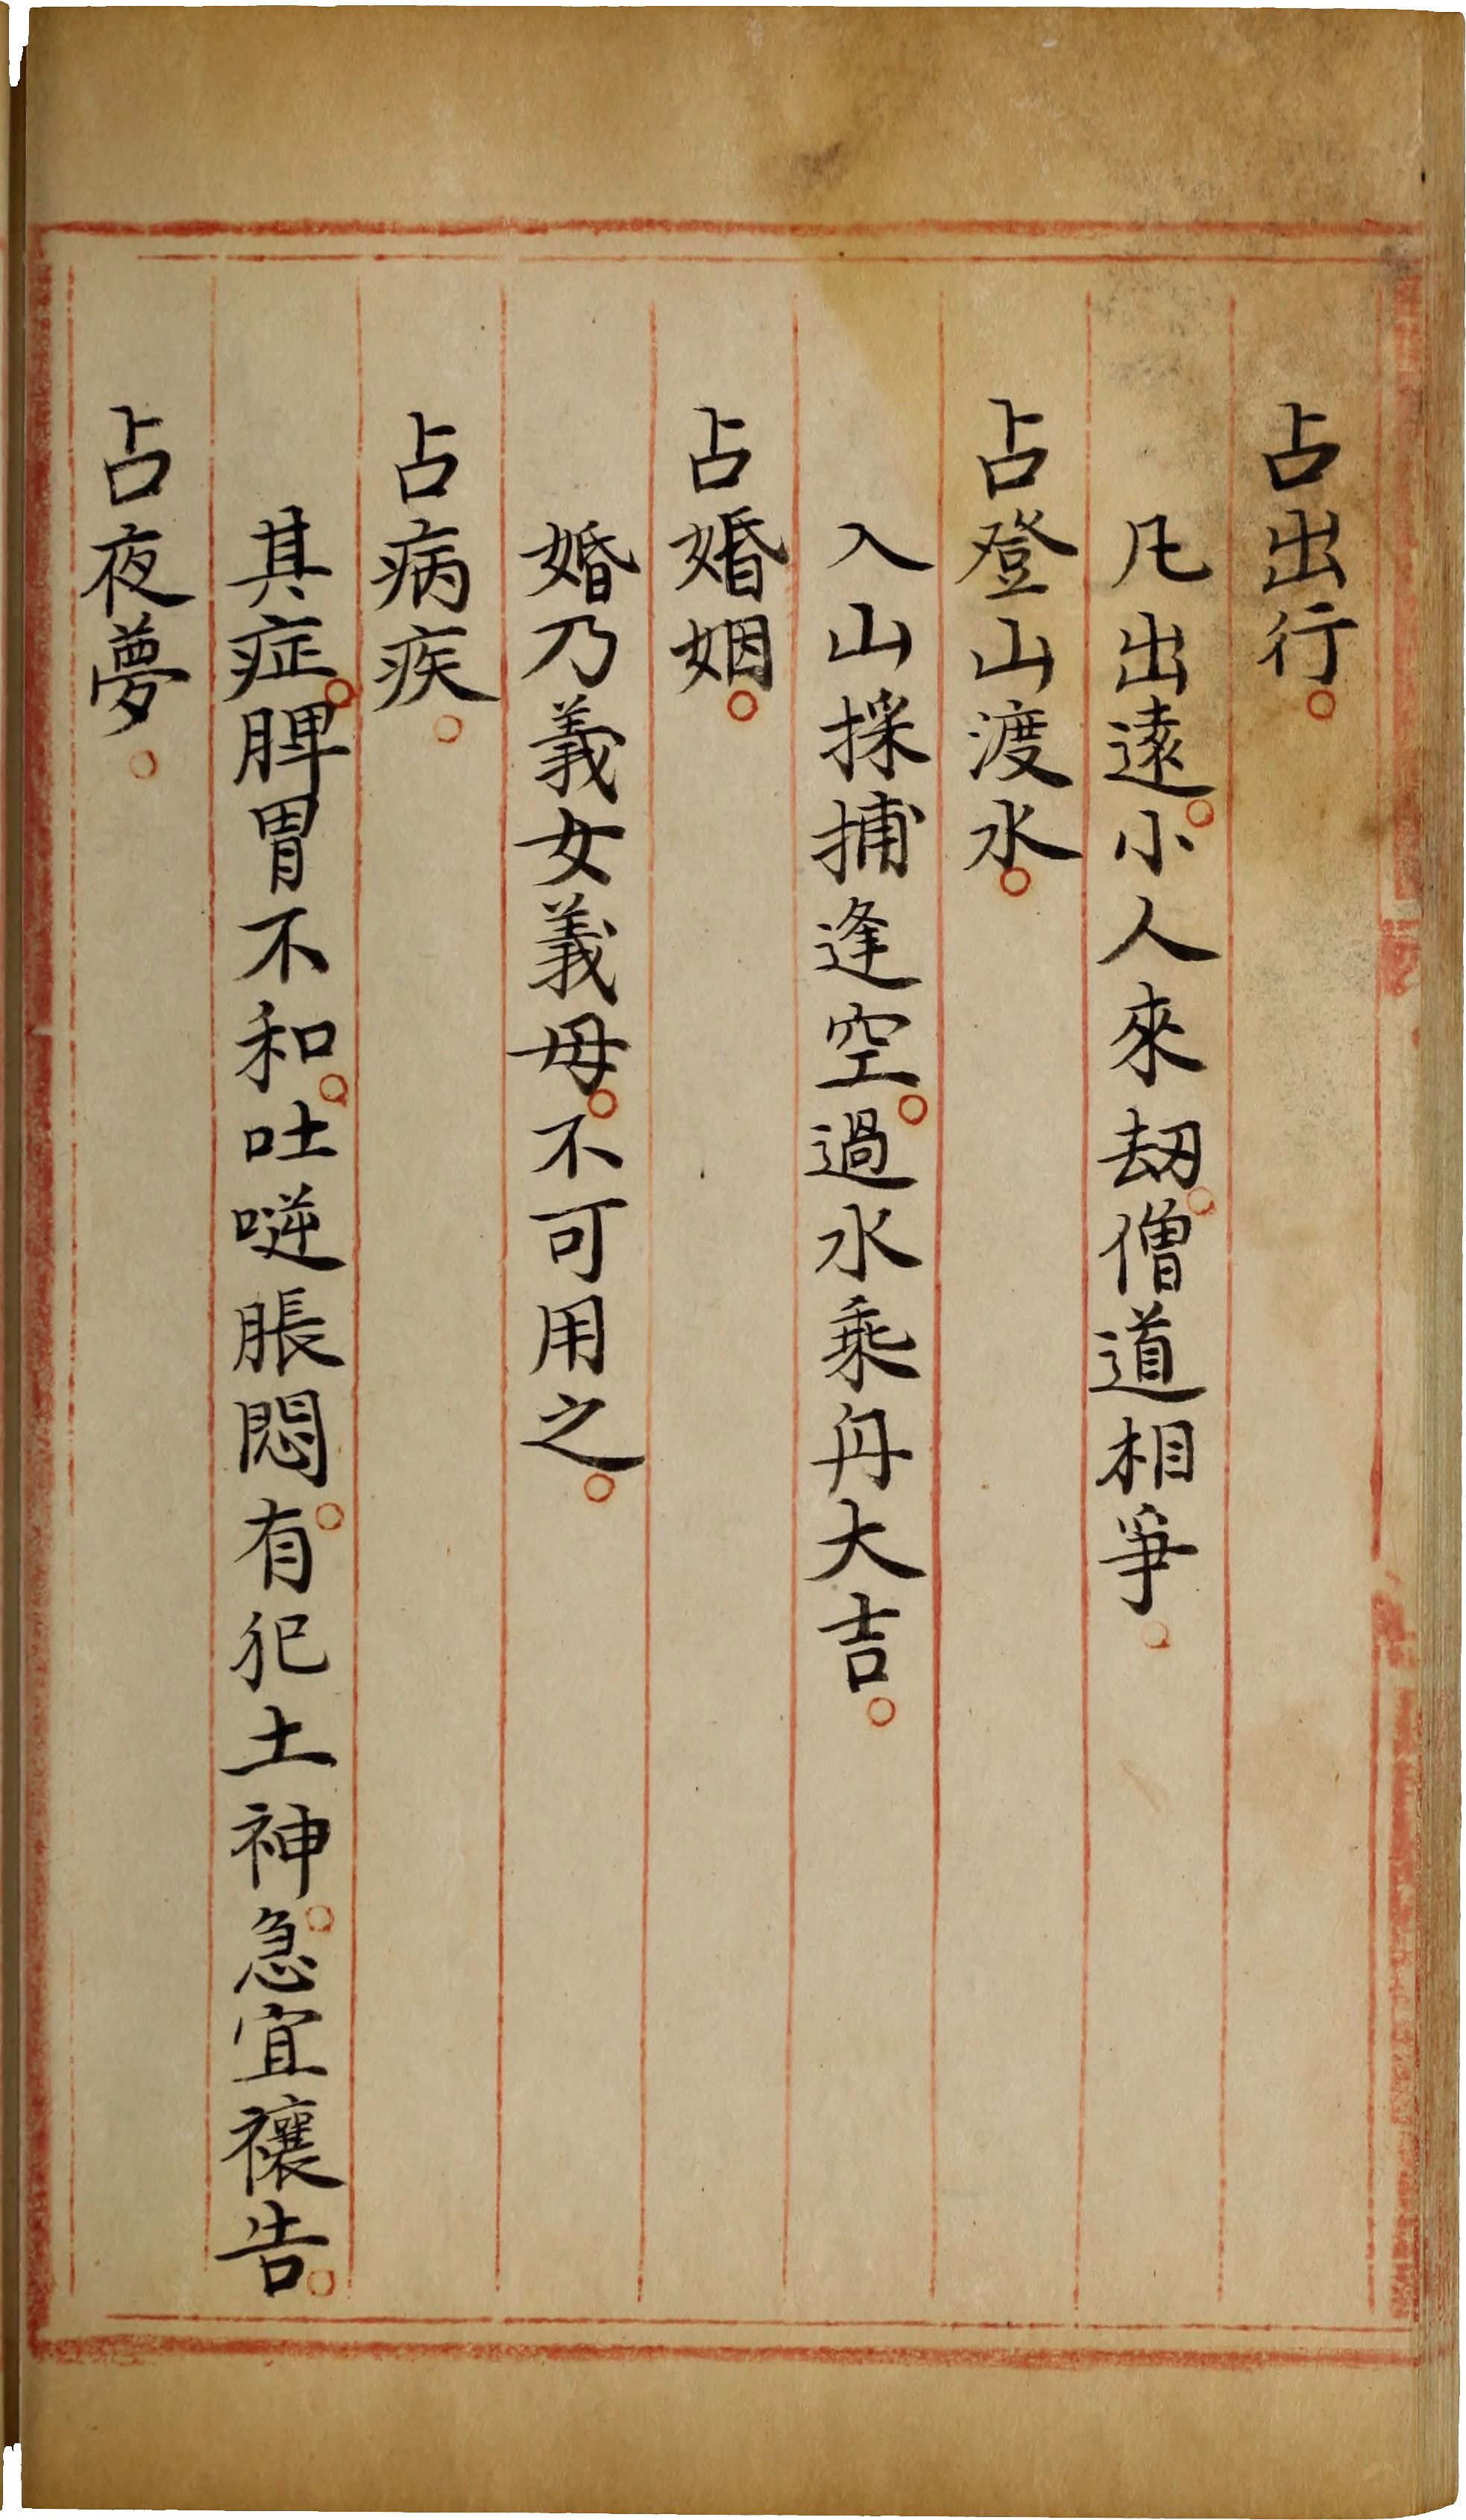 占出行。
凡出遠。小人來刼。僧道相爭。
占登山渡水。
入山採捕逢空。過水乘舟大吉。
占婚姻。
婚乃義女義母。不可用之。
占病疾。
其症。脾胃不和。吐噠脹悶。有犯土神。急宜禳告。
占夜夢。